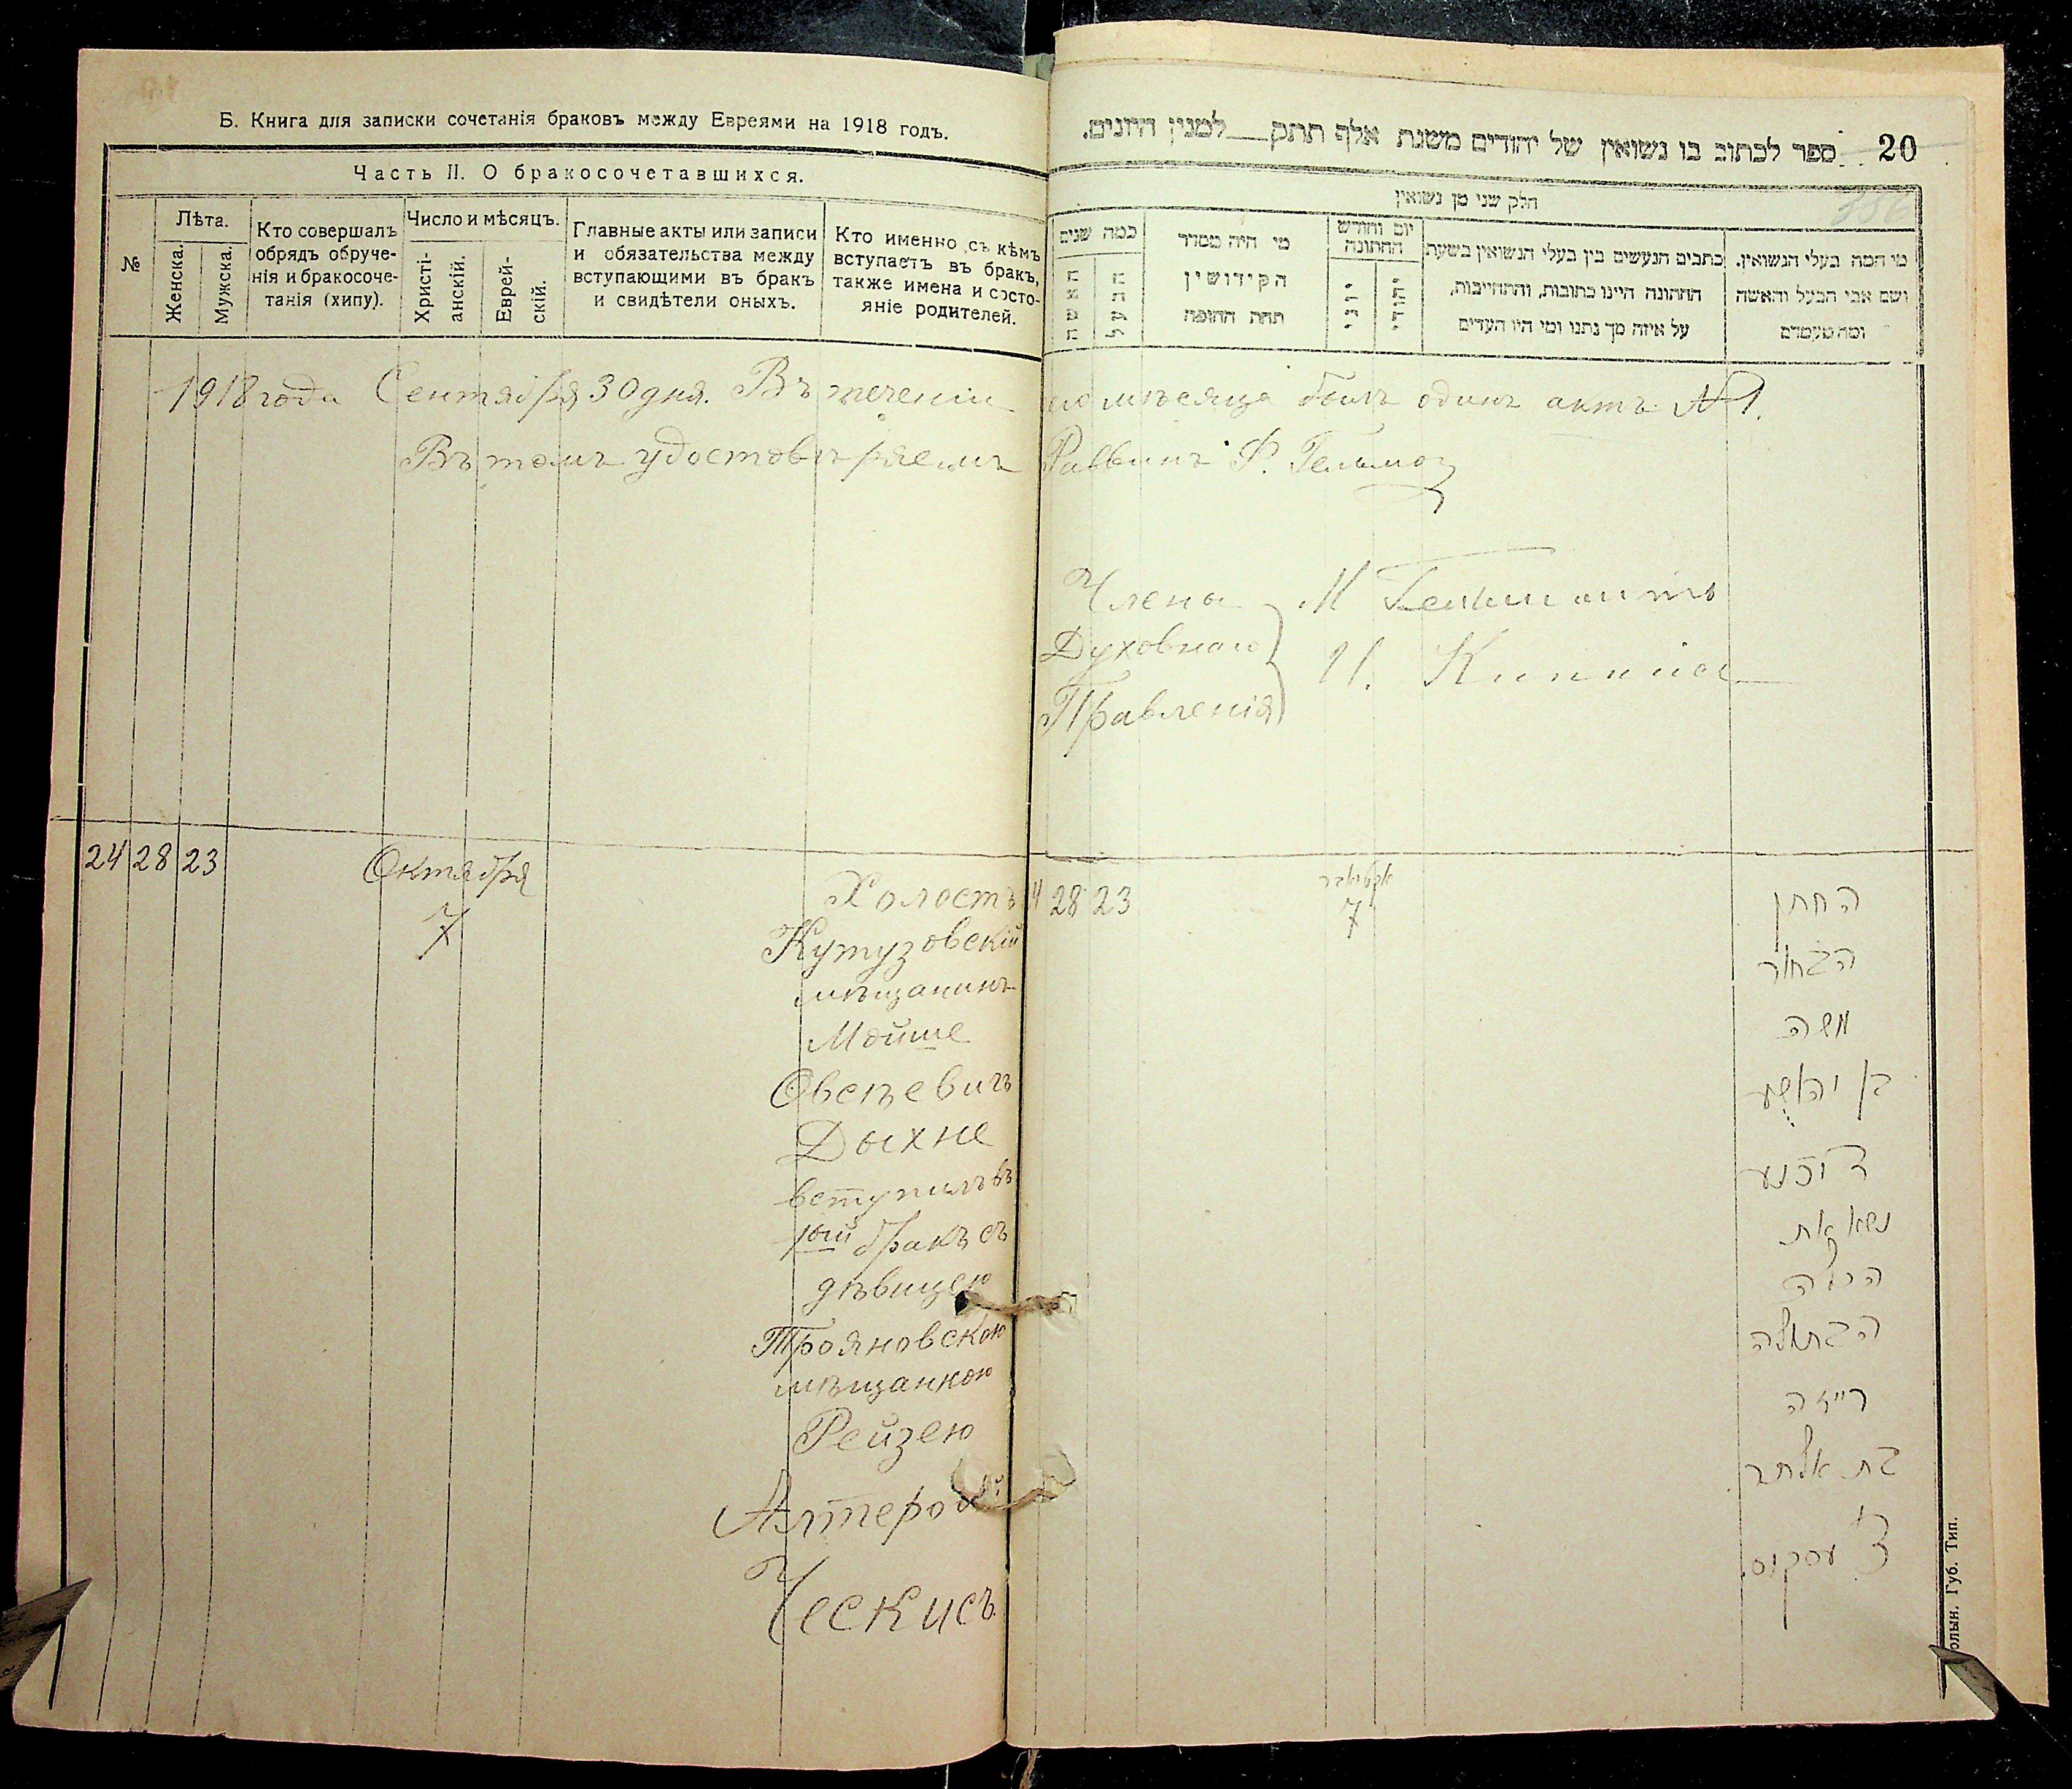 Б. Книга для записки сочетанія браковъ между Евреями на 1918 годъ.
Часть II. О бракосочетавшихся.
№
Лѣта.
Женска.
Мужеска.
Кто совершалъ
обрядъ обруче-
нія и бракосоче-
танія (хипу).
Число и мѣсяцъ.
Христі-
анскій.
Еврей-
скій.
Главные акты или записи
и обязательства между
вступающими въ бракъ
и свидѣтели оныхъ.
Кто именно съ кѣмъ
вступаетъ въ бракъ,
также имена и состо-
яніе родителей.
1918 года Сентября 30 дня. Въ теченіи
Въ томъ удостовѣряемъ
24 28 23
Октября
7
Холостъ
Кутузовскій
мѣщанинъ
Мойше
Овсѣевичъ
Дыхне
вступилъ въ
1ый бракъ съ
дѣвицею
Трояновскою
мѣщанкою
Рейзею
Ческисъ.
20
ספר לכתוב בו נשואין של יהודים משנת אלף תתק למנין היונים.
חלק שני מן נשואין
כמה שנים
האשה
הבעל
מי היה מסדר
הקידושין
תחת החופה
יום וחודש
החתונה
יוני
יהודי
כתבים הנעשים בין בעלי הנשואין בשעת
החתונה היינו כתובות, והתחייבות,
על איזה סך נתנו ומי היו העדים
מי המה בעלי הנשואין.
ושם אבי הבעל והאשה
ומה מעמדם
мѣсяца былъ одинъ актъ №1.
Раввинъ Ф.
Члены
Духовнаго
Правленія
М
И.
4 28 23
אקטיאבר
7
החתן
הבחור
משה
בן יהושע
דיכנע
נשא את
הכלה
הבתולה
רייזה
בת אלתר
олын. Губ. Тип.